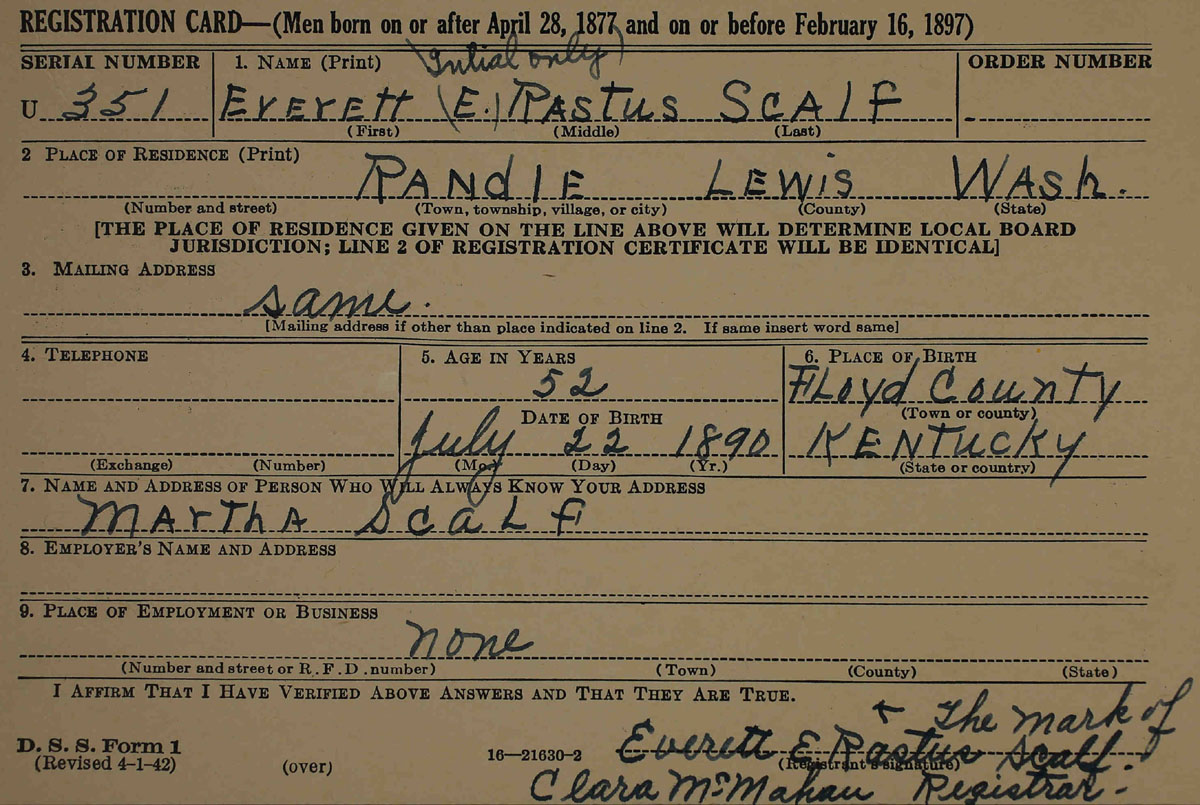 REGISTRATION CARD—(Men born on or after April 28, 1877 and on or before February 16, 1897)
(Intial only)
SERIAL NUMBER 1. NAME (Print) ORDER NUMBER
U 351 EVERETT (E.) RASTUS SCALF
(First) (Middle) (Last)
2 PLACE OF RESIDENCE (Print)
RANDLE LEWIS WASH.
(Number and street) (Town, township, village, or city) (County) (State)
[THE PLACE OF RESIDENCE GIVEN ON THE LINE ABOVE WILL DETERMINE LOCAL BOARD
JURISDICTION; LINE 2 OF REGISTRATION CERTIFICATE WILL BE IDENTICAL]
3. MAILING ADDRESS
same.
[Mailing address if other than place indicated on line 2. If same insert word same]
4. TELEPHONE 5. AGE IN YEARS 6. PLACE OF BIRTH
52 FLoyd County
DATE OF BIRTH (Town or county)
July 22 1890 KENTUCKY
(Exchange) (Number) (Mo.) (Day) (Yr.) (State or country)
7. NAME AND ADDRESS OF PERSON WHO WILL ALWAYS KNOW YOUR ADDRESS
MARTHA SCALF
8. EMPLOYER'S NAME AND ADDRESS
9. PLACE OF EMPLOYMENT OR BUSINESS
none
(Number and street or R. F. D. number) (Town) (County) (State)
I AFFIRM THAT I HAVE VERIFIED ABOVE ANSWERS AND THAT THEY ARE TRUE.
The mark of
D. S. S. Form 1 16—21630-2 Everett E Rastus Scalf.
(Revised 4-1-42) (over) (Registrant's signature)
Clara McMahan Registrar-